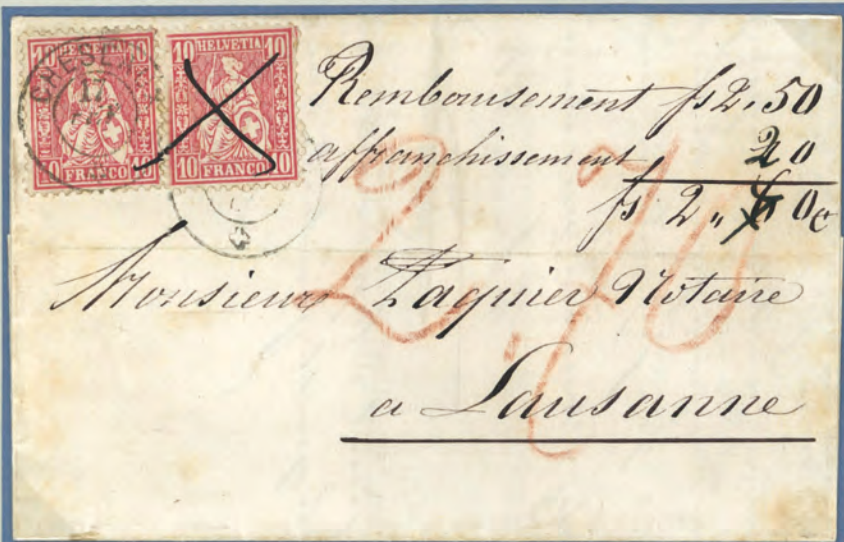 10 HELVETIA 10
10 FRANCO 10
10 HELVETIA 10
10 FRANCO 10
17
Remboursement fs 2.50
affranchissement 20
fs 2 „ 70 c
2,70
Monsieur Zaquier Notaire
a Lausanne